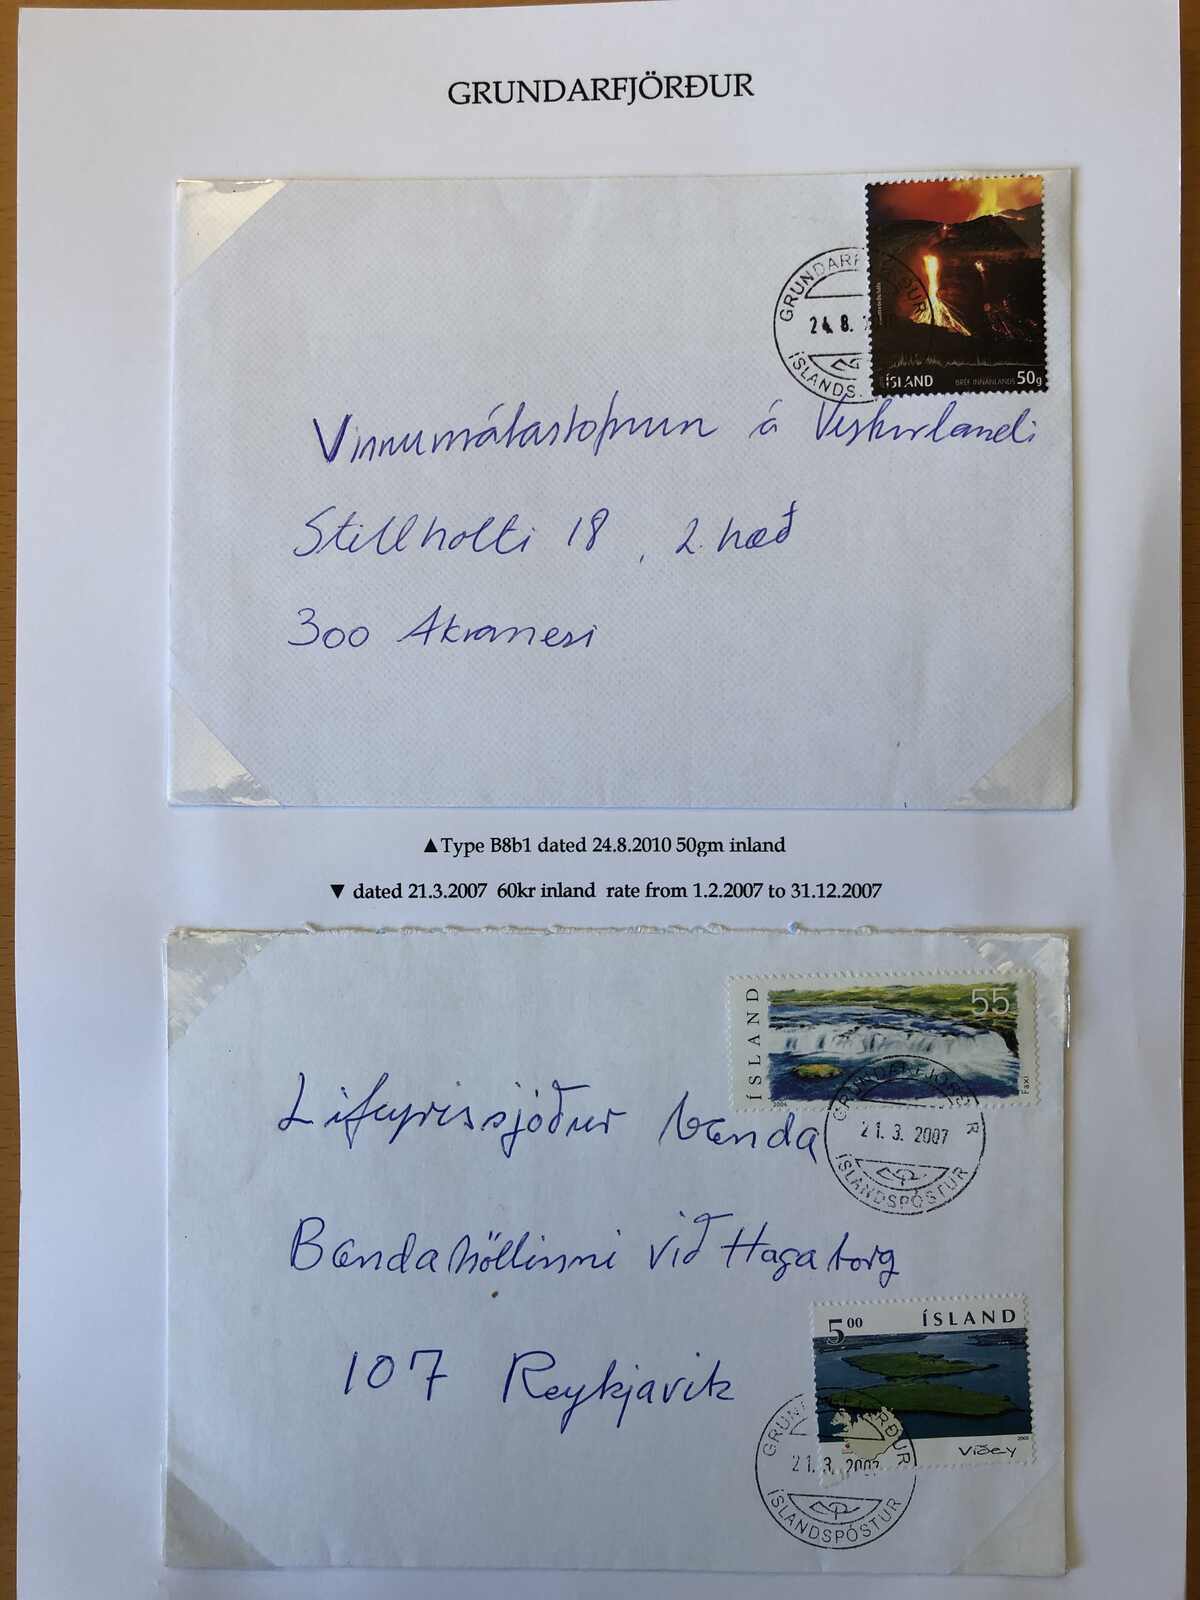 GRUNDARFJÖRÐUR
GRUNDARFJÖRÐUR
24.8.
ÍSLANDS
ÍSLAND BRÉF INNANLANDS 50g
Vinnumálastofnun á Vesturlandi
Stillholti 18, 2. hæð
300 Akranesi
▲Type B8b1 dated 24.8.2010 50gm inland
▼ dated 21.3.2007 60kr inland rate from 1.2.2007 to 31.12.2007
ÍSLAND
55
Faxi
GRUNDARFJÖRÐUR
21. 3. 2007
ÍSLANDSPÓSTUR
Lífeyrissjóður bænda
Bændahöllinni við Hagatorg
107 Reykjavík
5 00 ÍSLAND
Viðey
GRUNDARFJÖRÐUR
21. 3. 2007
ÍSLANDSPÓSTUR